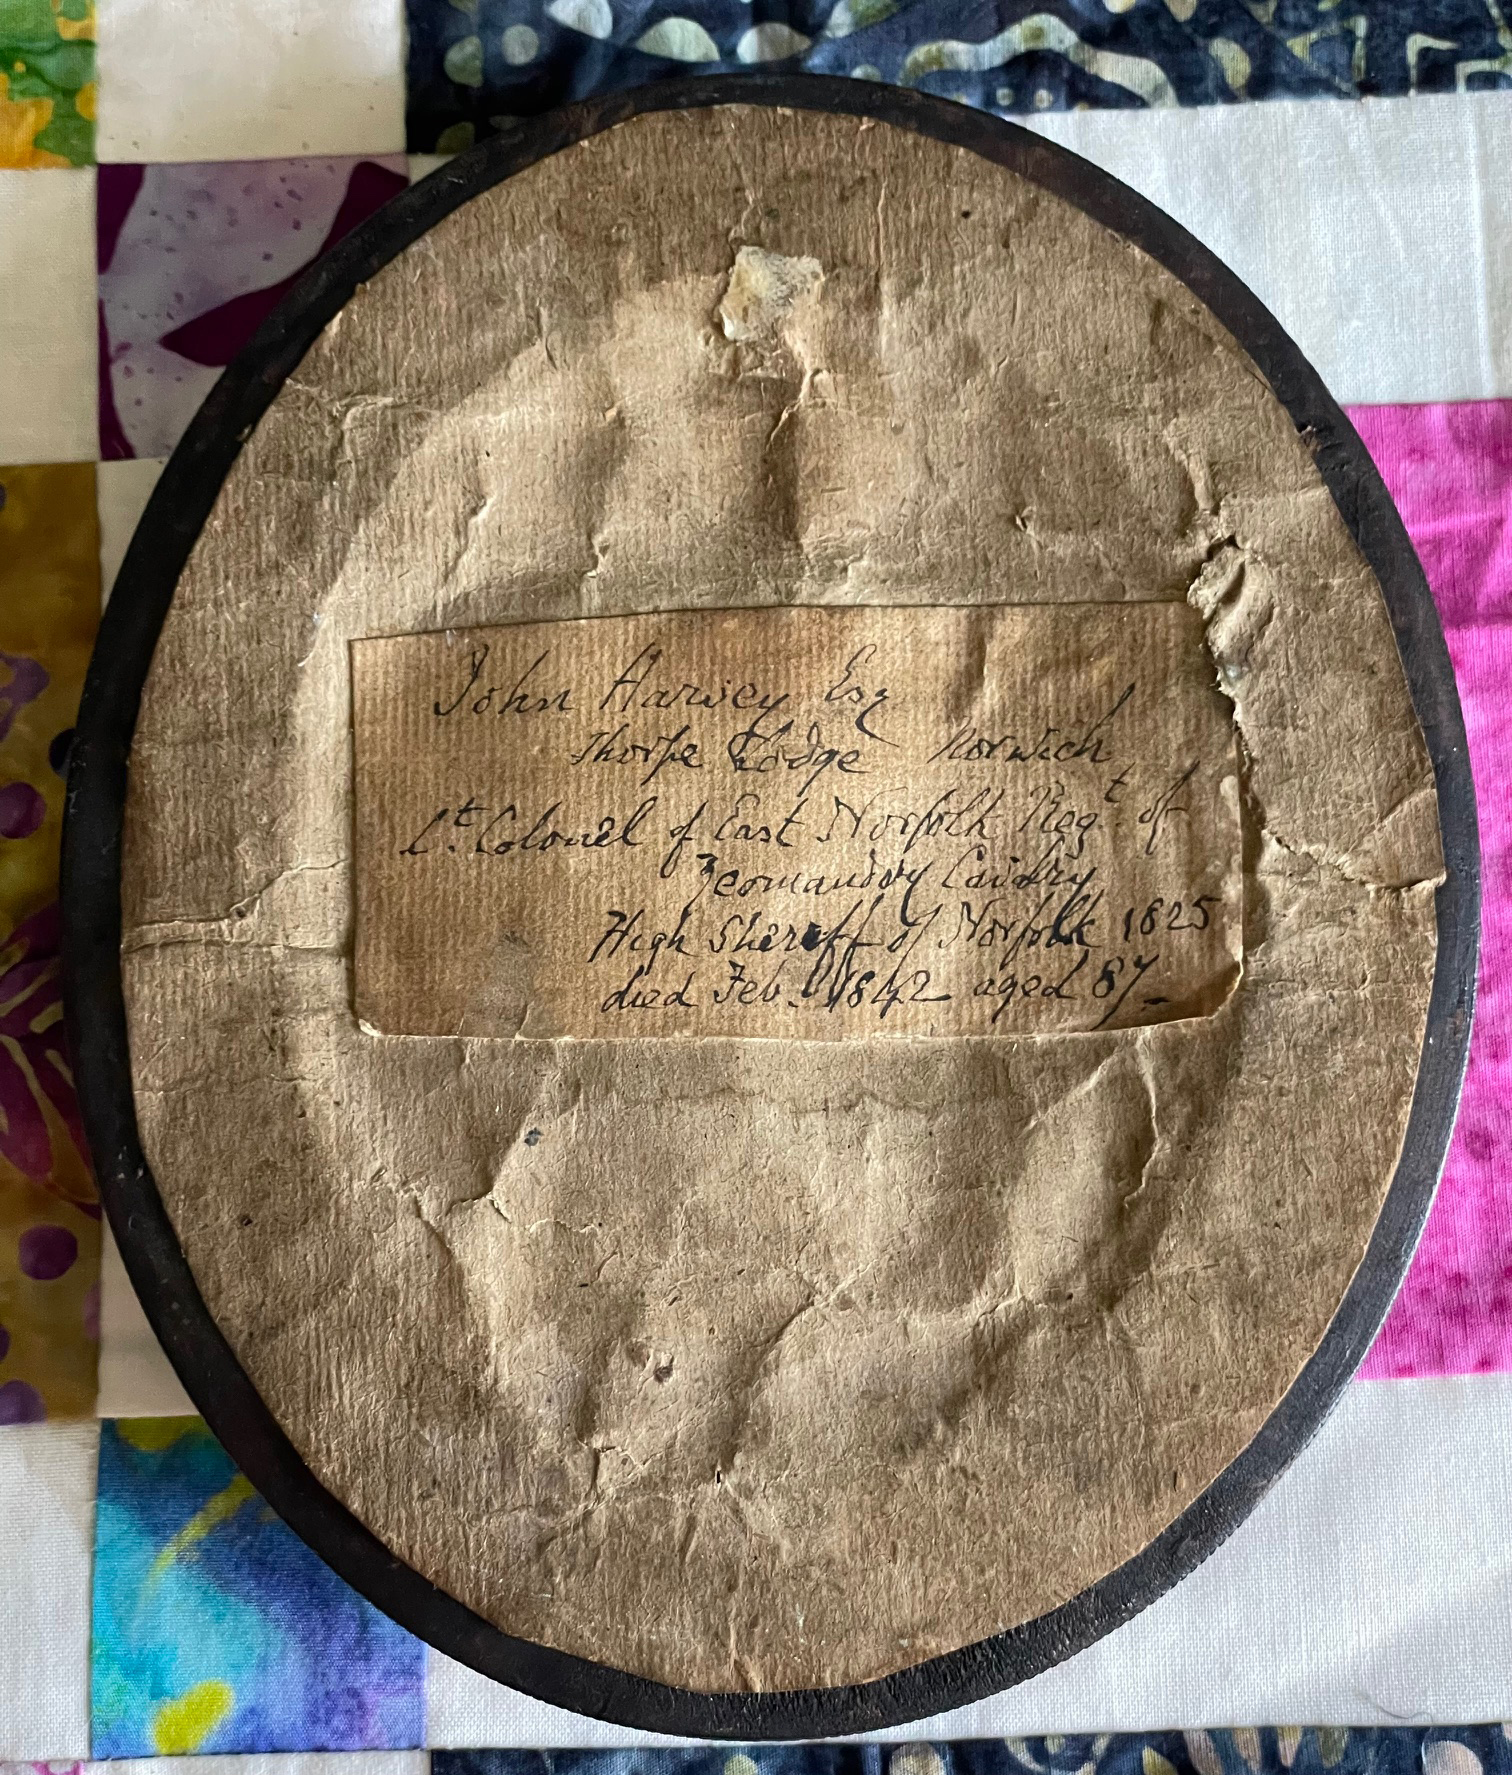 John Harvey Esq
Thorpe Lodge Norwich
Lt. Colonel of East Norfolk Regt. of
Yeomandry Cavalry
High Sheriff of Norfolk 1825
died Feb. 1842 aged 87_